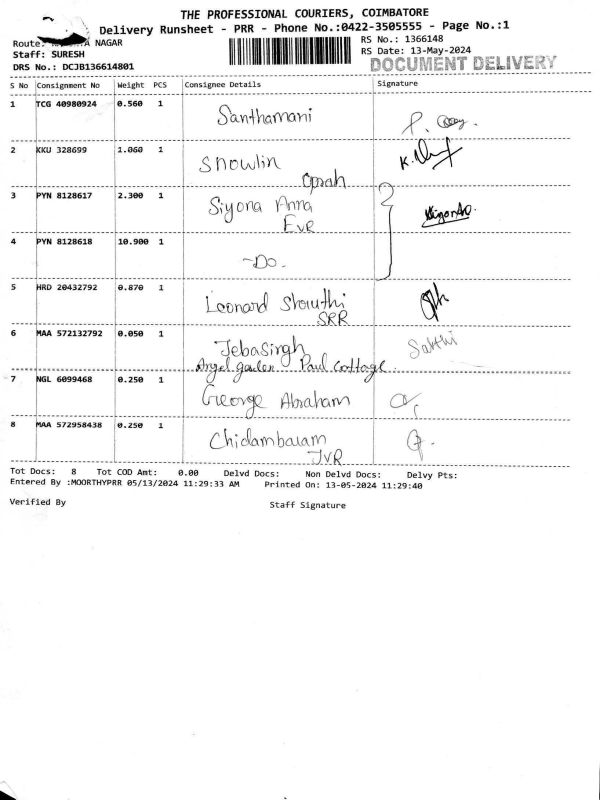 THE PROFESSIONAL COURIERS, COIMBATORE
Delivery Runsheet - PRR - Phone No.:0422-3505555 - Page No.:1
Route: NAGAR
RS No.: 1366148
Staff: SURESH
RS Date: 13-May-2024
DRS No.: DCJB136614801
DOCUMENT DELIVERY
S No Consignment No Weight PCS Consignee Details Signature
1 TCG 40980924 0.560 1 Santhamani
2 KKU 328699 1.060 1 Snowlin
Oprah
3 PYN 8128617 2.300 1 Siyona Anna
EVR
4 PYN 8128618 10.900 1 -Do.
5 HRD 20432792 0.870 1 Leonard Shruthi
SRR
6 MAA 572132792 0.050 1 Jebasingh Sakthi
Angel garden Paul Cottage
7 NGL 6099468 0.250 1 George Abraham
8 MAA 572958438 0.250 1 Chidambaram
JVR
Tot Docs: 8 Tot COD Amt: 0.00 Delvd Docs: Non Delvd Docs: Delvy Pts:
Entered By :MOORTHYPRR 05/13/2024 11:29:33 AM Printed On: 13-05-2024 11:29:40
Verified By Staff Signature